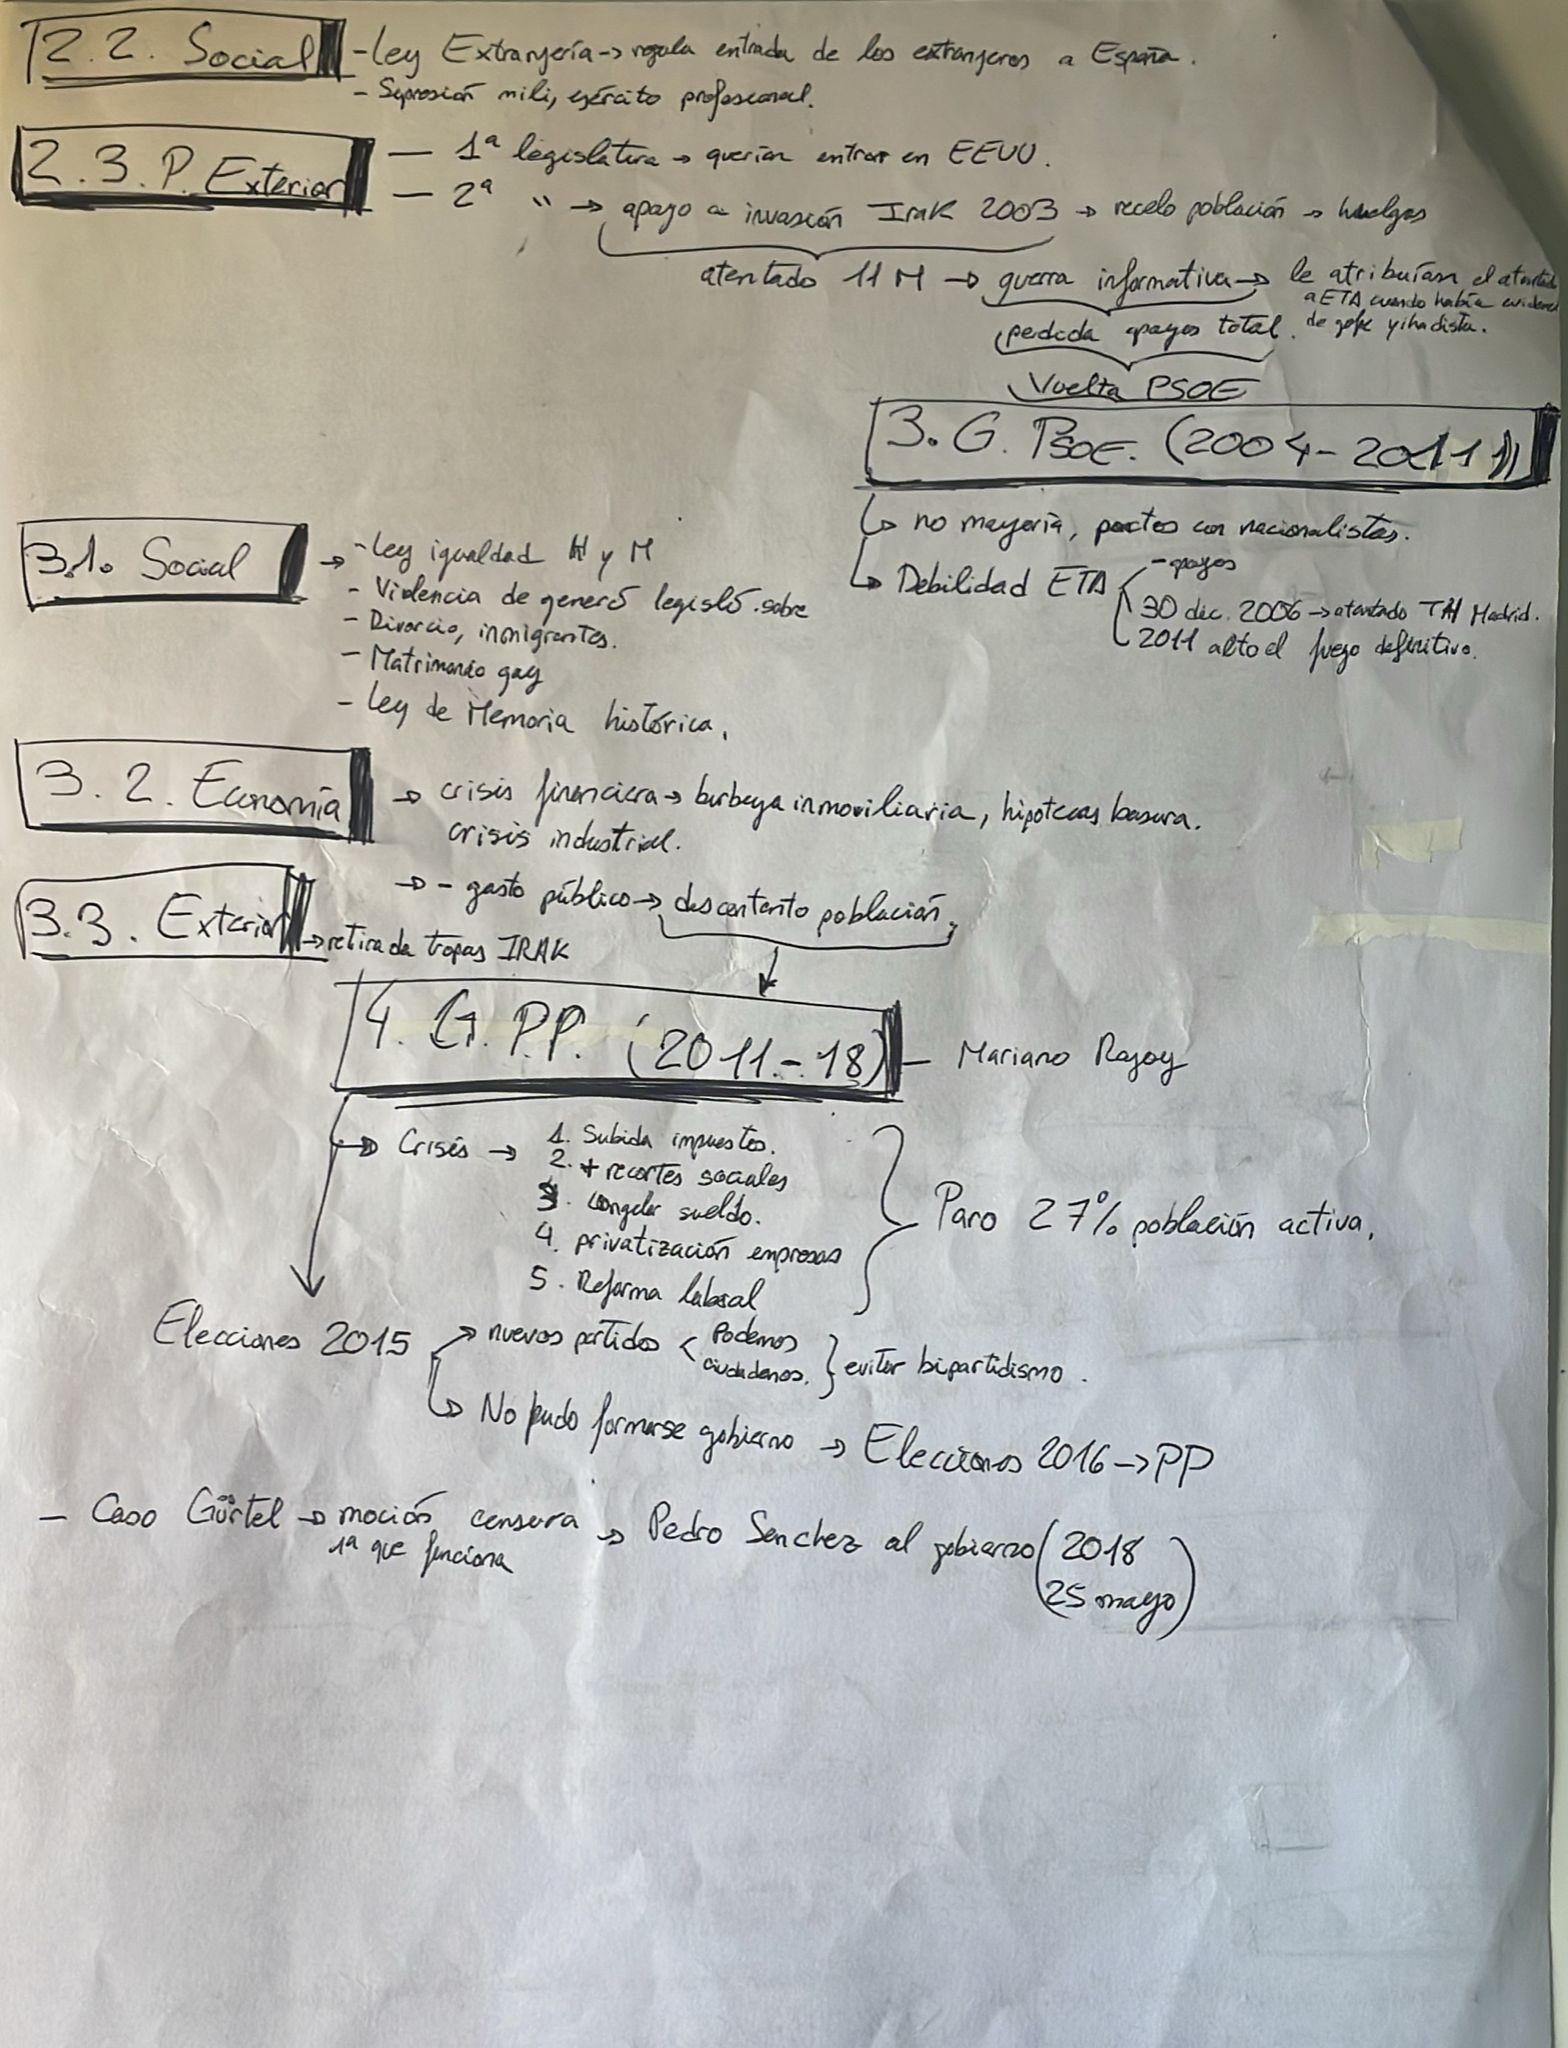 2.2. Social
- Ley Extranjería → regula entrada de los extranjeros a España.
- Supresión mili, ejército profesional.
2.3. P. Exterior
— 1ª legislatura → querían entrar en EEUU.
— 2ª " → apoyo a invasión Irak 2003 → recelo población → huelgas
atentado 11 M → guerra informativa → le atribuían el atentado
a ETA cuando había evidencia
de golpe yihadista.
perdida apoyos total.
Vuelta PSOE
3. G. PSOE. (2004-2011)
↳ no mayoría, pactos con nacionalistas.
↳ Debilidad ETA
- apoyos
30 dic. 2006 → atentado T4 Madrid.
2011 alto el fuego definitivo.
3.1. Social
→ - Ley igualdad H y M
- Violencia de género legisló sobre
- Divorcio, inmigrantes.
- Matrimonio gay
- Ley de Memoria histórica.
3.2. Economía
→ crisis financiera → burbuja inmoviliaria, hipotecas basura.
crisis industrial.
→ - gasto público → descontento población.
3.3. Exterior
→ retirada tropas IRAK
4. G. P.P. (2011-18) — Mariano Rajoy
→ Crisis →
1. Subida impuestos.
2. + recortes sociales
3. congelar sueldo.
4. privatización empresas
5. Reforma laboral
Paro 27% población activa.
Elecciones 2015
→ nuevos partidos < Podemos
ciudadanos. } evitar bipartidismo.
↳ No pudo formarse gobierno → Elecciones 2016 → PP
- Caso Gürtel → moción censura → Pedro Sanchez al gobierno (2018
1ª que funciona
25 mayo)